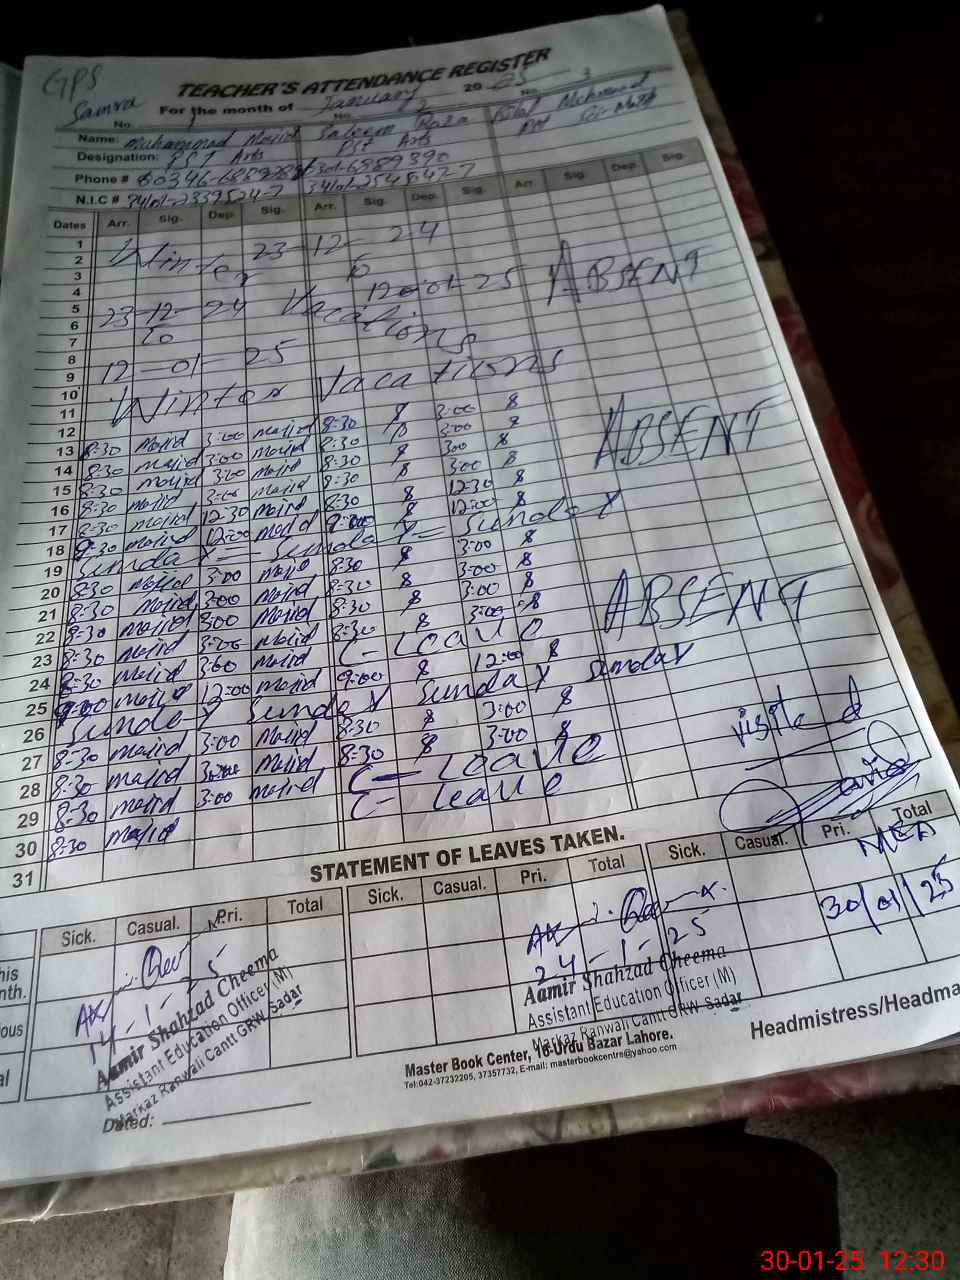 GPS
Samra
TEACHER'S ATTENDANCE REGISTER
For the month of January 2025
No. 1 No. 2 No. 3
Name: Muhammad Majid Saleem Raza Bilal Mehmood
Designation: PST Arts PST Arts
Phone #
N.I.C #
Dates Arr. Sig. Dep. Sig. Arr. Sig. Dep. Sig. Arr. Sig. Dep. Sig.
1
2 Winter 23-12-24
3 to
4 12-01-25 ABSENT
5 23-12-24 Vacations
6 to
7
8 12-01-25
9
10 Winter Vacations
11
12
13 8:30 majid 3:00 majid 8:30 8 3:00 8
14 8:30 majid 3:00 majid 8:30 8 3:00 8 ABSENT
15 8:30 majid 3:00 majid 8:30 8 300 8
16 8:30 majid 3:00 majid 8:30 8 3:00 8
17 8:30 majid 12:30 majid 8:30 8 12:30 8
18 9:30 majid 12:00 majid 9:00 8 12:00 8
19 Sunday = Sunday = Sunday
20 8:30 majid 3:00 majid 8:30 8 3:00 8
21 8:30 majid 3:00 majid 8:30 8 3:00 8
22 8:30 majid 3:00 majid 8:30 8 3:00 8 ABSENT
23 8:30 majid 3:00 majid 8:30 8 3:00 8
24 8:30 majid 3:00 majid C- Leave
25 9:00 majid 12:00 majid 9:00 8 12:00 8
26 Sunday Sunday Sunday Sunday
27 8:30 majid 3:00 majid 8:30 8 3:00 8
28 8:30 majid 3:00 majid 8:30 8 3:00 8 visited
29 8:30 majid 3:00 majid C- Leave
30 8:30 majid C- Leave
31
STATEMENT OF LEAVES TAKEN.
Sick. Casual. Pri. Total Sick. Casual. Pri. Total Sick. Casual. Pri. Total
MEA
30/01/25
his
nth.
ious
al
14-1-25
Aamir Shahzad Cheema
Assistant Education Officer (M)
Markaz Ranwali Cantt GRW Sadar
24-1-25
Aamir Shahzad Cheema
Assistant Education Officer (M)
Markaz Ranwali Cantt GRW Sadar
Headmistress/Headma
Master Book Center, 16-Urdu Bazar Lahore.
Tel:042-37232205, 37357732, E-mail: masterbookcentre@yahoo.com
Dated:
30-01-25 12:30